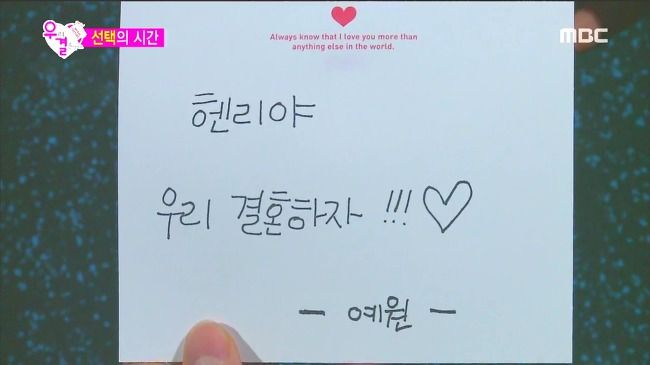 우리 결
선택의 시간
MBC
Always know that I love you more than
anything else in the world.
헨리야
우리 결혼하자 !!! ♡
- 예원 -